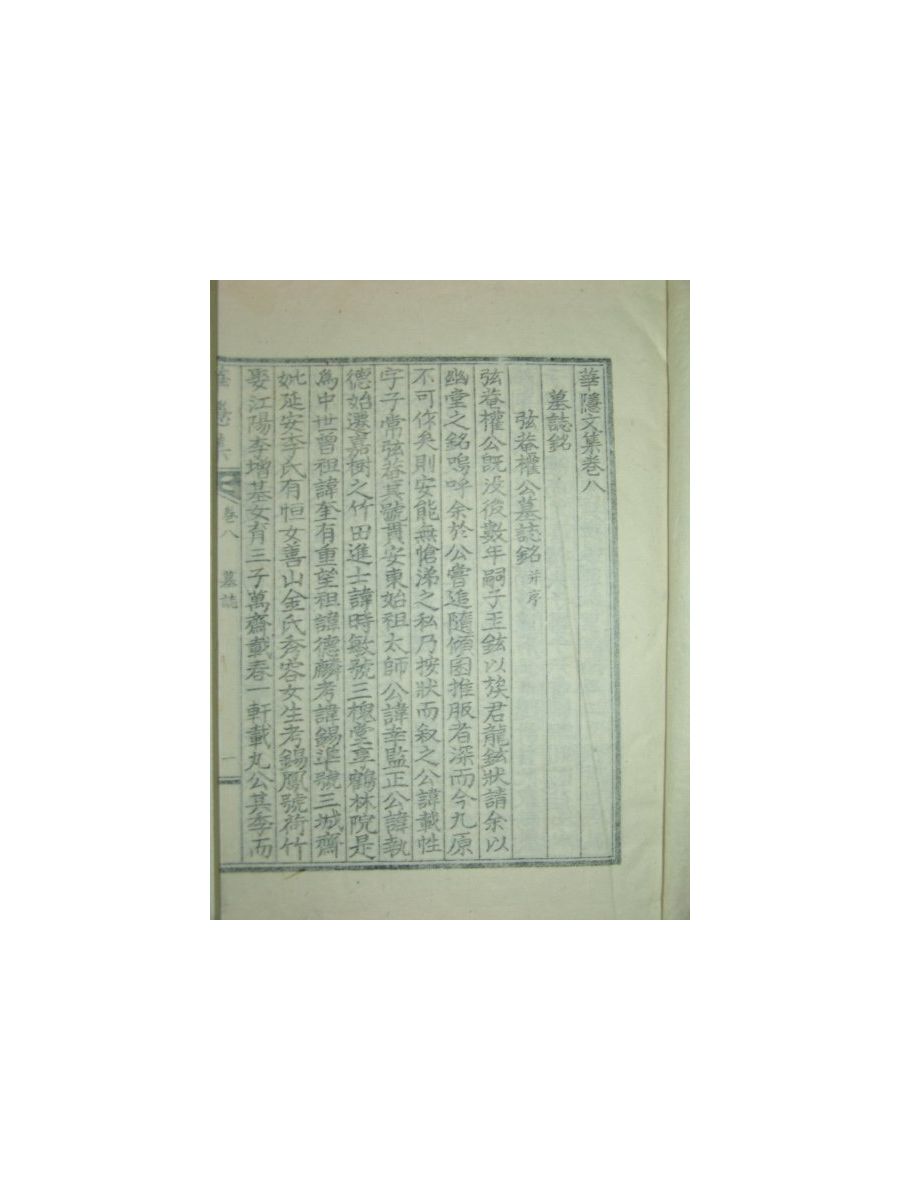 華隱文集卷八
墓誌銘
弦菴權公墓誌銘 并序
弦菴權公旣沒後數年嗣子玉鉉以族君龍鉉狀請余以
幽堂之銘嗚呼余於公嘗追隨傾囷推服者深而今九原
不可作矣則安能無愴涕之私乃按狀而叙之公諱載性
字子常弦菴其號貫安東始祖太師公諱幸監正公諱執
德始遷嘉樹之竹田進士諱時敏號三槐堂享鶴林院是
爲中世曾祖諱奎有重望祖諱德麟考諱錫準號三城齋
妣延安李氏有恒女善山金氏秀容女生考錫鳳號荷竹
娶江陽李增基女育三子萬齋載春一軒載丸公其季而
卷八
墓誌
一